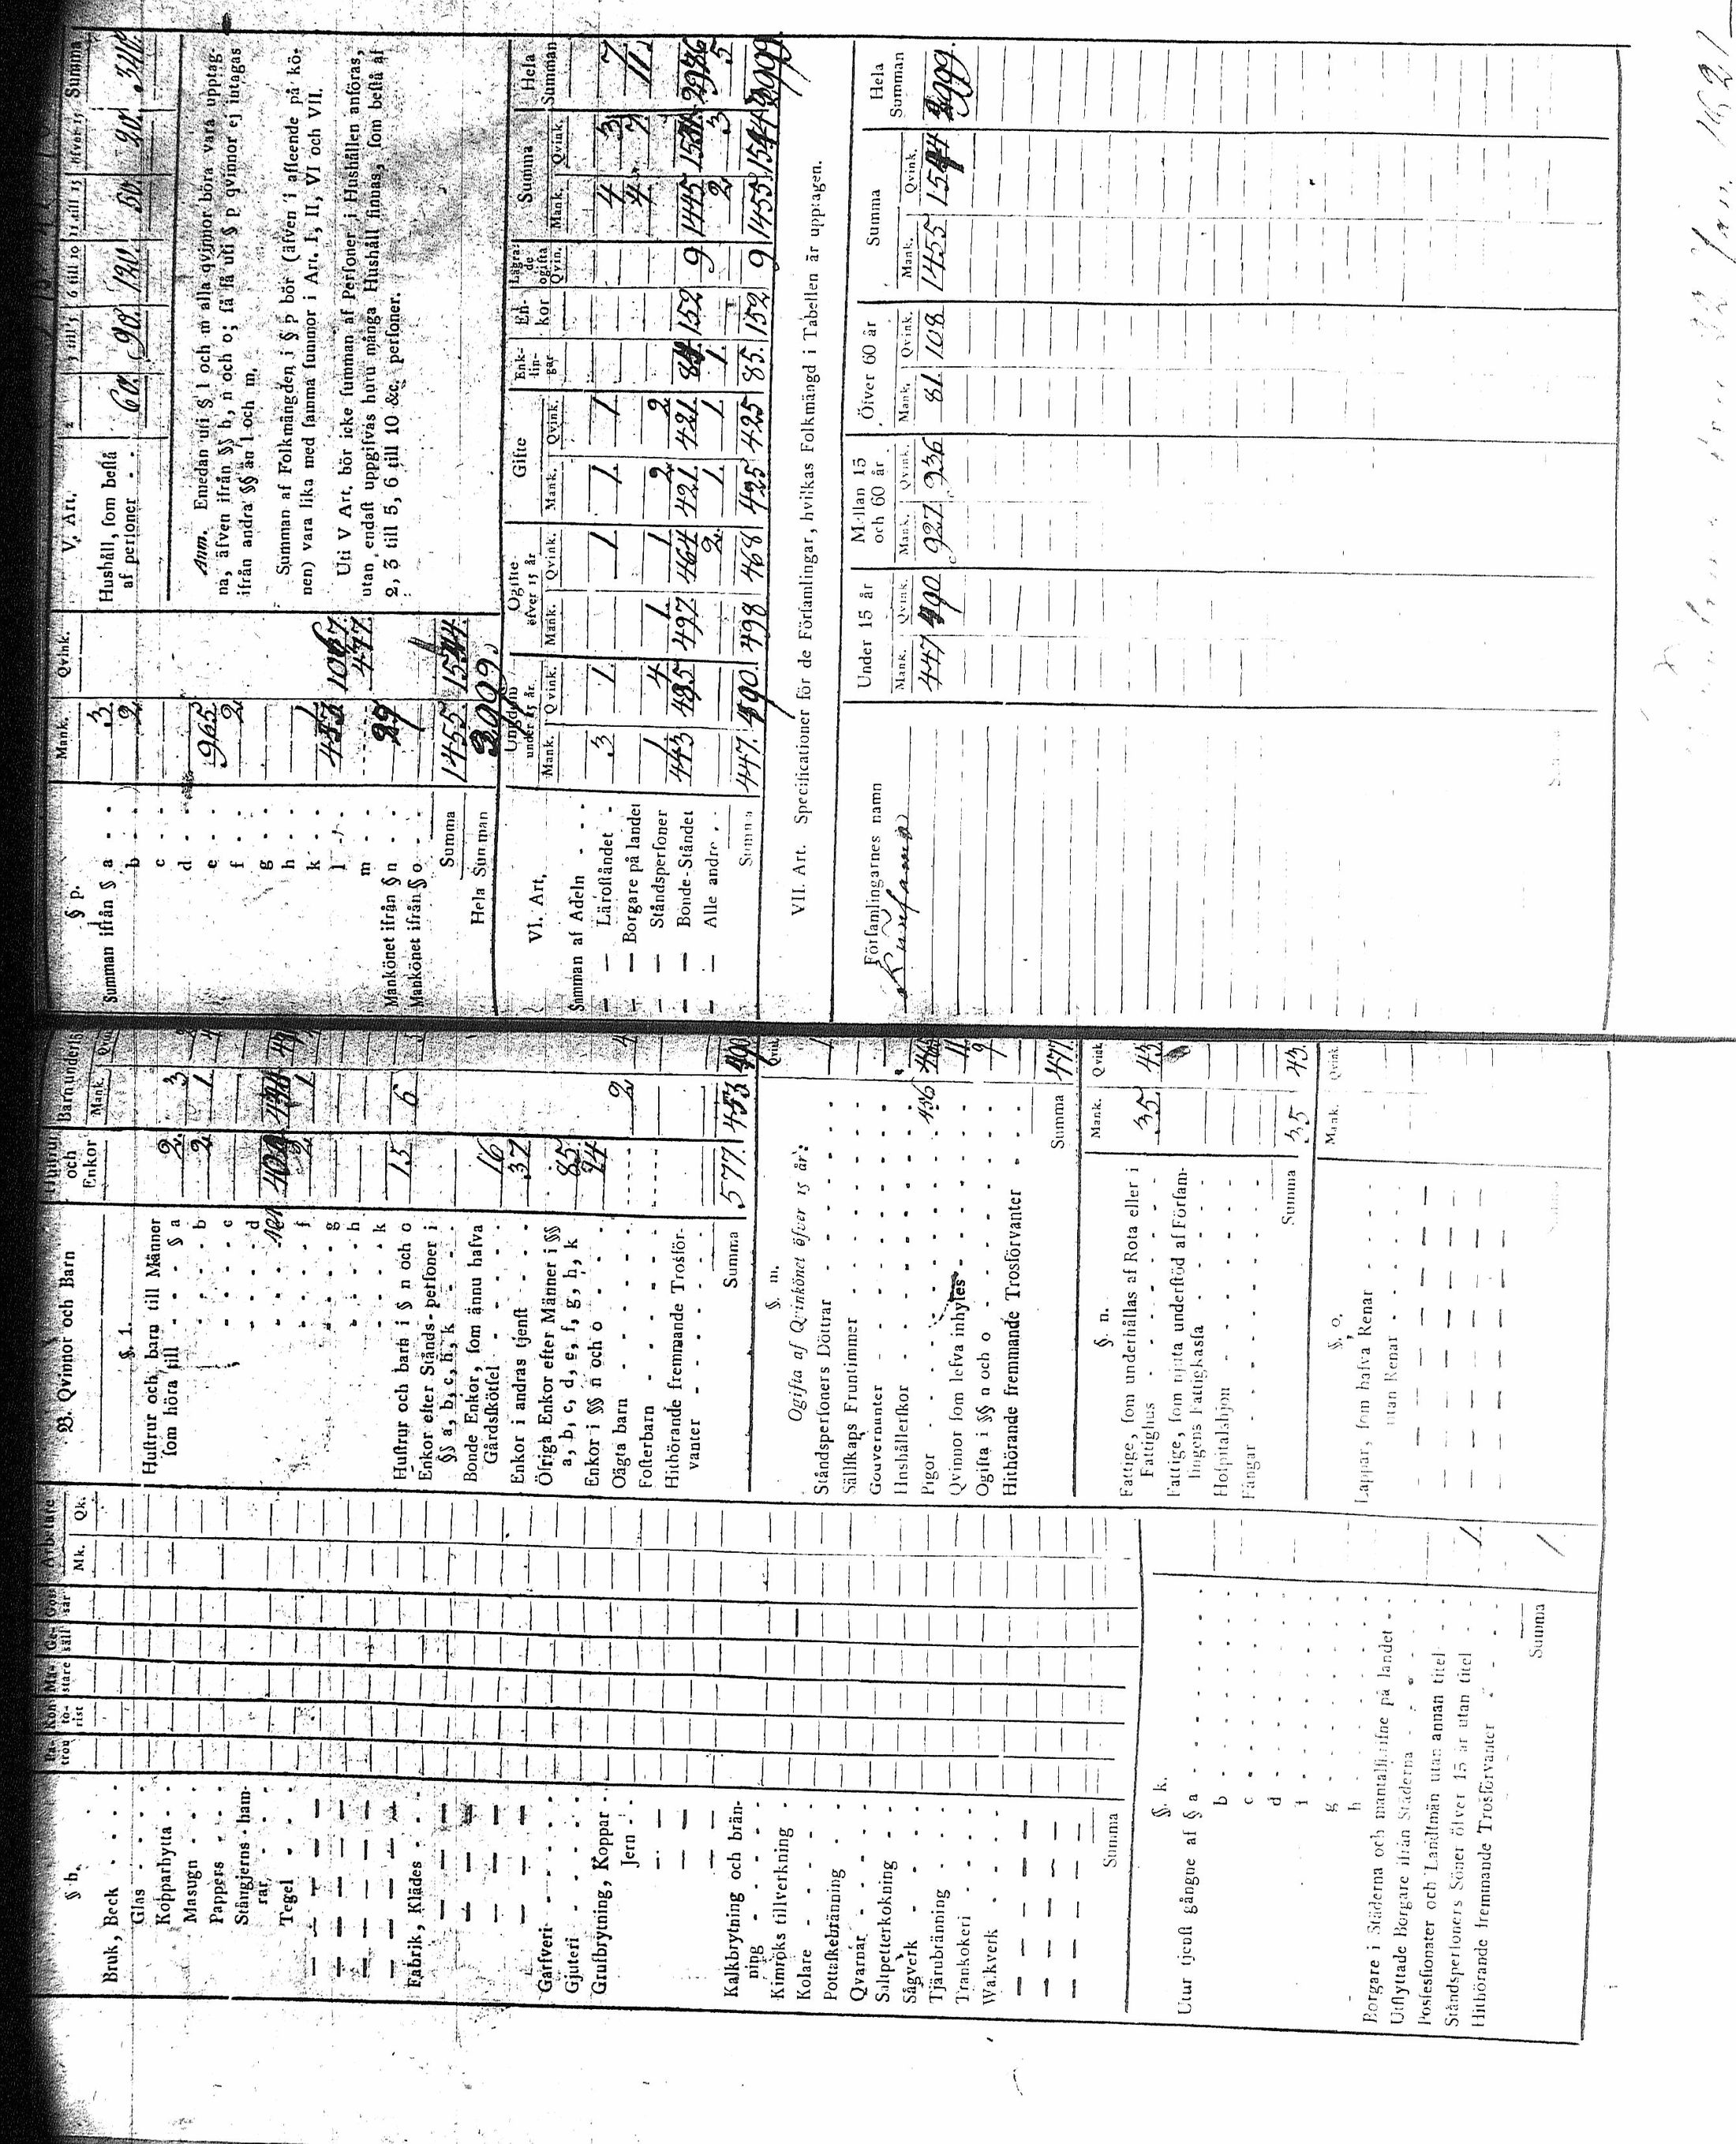 § h.
Bruk, Beck - - -
Glas - - -
Kopparhytta - -
Masugn - -
Pappers - -
Stångjerns-ham-
rar - -
Tegel - -
Fabrik, Klädes - -
Garfveri - - -
Gjuteri - - -
Grufbrytning, Koppar -
Jern - -
Kalkbrytning och brän-
ning - - -
Kimröks tillverkning -
Kolare - - -
Pottaskebränning -
Qvarnar - - -
Saltpetterkokning -
Sågverk - - -
Tjärubränning - -
Trankokeri - -
Walkverk - -
Summa
Pa-
tron
Kon-
to-
rist
Mä-
stare
Ge-
säll
Gos-
sar
Arbetare
Mk. Qk.
§. k.
Utur tjenst gångne af § a - -
b - -
c - -
d - -
f - -
g - -
h - -
Borgare i Städerna och mantalsskrifne på landet - -
Utflyttade Borgare ifrån Städerna - - -
Possessionater och Landtmän utan annan titel -
Ståndspersoners Söner öfver 15 år utan titel - 1.
Hithörande fremmande Trosförvanter - -
Summa 1
B. Qvinnor och Barn
§. 1.
Hustrur och Enkor
Barn under 15
Mank. Qvink.
Hustrur och barn till Männer
som höra till - - - § a 2. 3
b 2 1
c
d
f 2 1
g
h
k
Hustrur och barn i § n och o 15 6
Enkor efter Stånds-personer i
§§ a, b, c, h, k - -
Bonde Enkor, som ännu hafva
Gårdsskötsel - - 16
Enkor i andras tjenst - - 37
Öfriga Enkor efter Männer i §§
a, b, c, d, e, f, g, h, k 85
Enkor i §§ n och o - - 24
Oägta barn - - - 2
Fosterbarn - - -
Hithörande fremmande Trosför-
vanter - - -
Summa 577. 453 490
§. m.
Ogifta af Qvinkönet öfver 15 år:
Qvink.
Ståndspersoners Döttrar - - 1
Sällskaps Fruntimmer - -
Gouvernanter - - -
Hushållerskor - - -
Pigor - - - 456
Qvinnor som lefva inhyses - - 11
Ogifta i §§ n och o - - 9
Hithörande fremmande Trosförvanter - -
Summa 477.
§. n.
Mank. Qvink.
Fattige, som underhållas af Rota eller i
Fattighus - - - 35. 43.
Fattige, som njuta understöd af Försam-
lingens Fattigkassa - -
Hospitalshjon - - -
Fångar - - -
Summa 35 43.
§. o.
Mank. Qvink.
Lappar, som hafva Renar - -
utan Renar - -
§ p.
Mank. Qvink.
Summan ifrån § a - - 3
b - - 2
c - -
d - -
e - - 965
f - - 2
g - -
h - -
k - - 1
l - - 453 1067.
m - - 477
Mankönet ifrån § n - - 29
Mankönet ifrån § o - -
Summa 1455 1544
Hela Summan 2999.
V. Art.
Hushåll, som bestå
af personer - -
2 3 till 5 6 till 10 11 till 15 öfver 15 Summa
60. 90. 120. 50. 20. 340.
Anm. Emedan uti § l och m alla qvinnor böra vara upptag-
na, äfven ifrån §§ b, n och o; så få uti § p qvinnor ej intagas
ifrån andra §§ än l och m.
Summan af Folkmängden i § p bör (äfven i afseende på kö-
nen) vara lika med samma summor i Art. I, II, VI och VII.
Uti V Art. bör icke summan af Personer i Hushållen anföras,
utan endast uppgifvas huru många Hushåll finnas, som bestå af
2, 3 till 5, 6 till 10 &c. personer.
VI. Art.
Ungdom
under 15 år.
Ogifte
öfver 15 år
Gifte
Enk-
lin-
gar
En-
kor
Lägra-
de
ogifta
Qvin.
Summa
Hela
Summan
Mank. Qvink. Mank. Qvink. Mank. Qvink. Mank. Qvink.
Summan af Adeln - -
— — Läroståndet - 3 1 1 1 1 4 3 7
— — Borgare på landet
— — Ståndspersoner 1 4 1. 1 2 2 4 7 11.
— — Bonde-Ståndet 443 485 497 464 421 421 84 152 9 1445 1531 2976
— — Alle andre - - 2. 1. 1 1. 2 3 5
Summa 447. 490. 498 468 425 425 85. 152 9 1455 1544 2999.
VII. Art. Specificationer för de Församlingar, hvilkas Folkmängd i Tabellen är upptagen.
Församlingarnes namn
Under 15 år
Mellan 15
och 60 år
Öfver 60 år
Summa
Hela
Summan
Mank. Qvink. Mank. Qvink. Mank. Qvink. Mank. Qvink.
447 490 927 936 81. 108 1455 1544 2999.